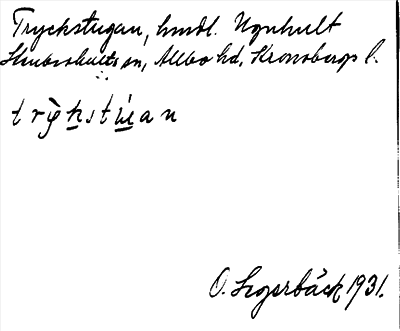 Tryckstugan, hmdl. Ugnhult
Stenbrohults sn, Allbo hd, Kronobergs l.
trỳkstúan
O. Segerbäck 1931.